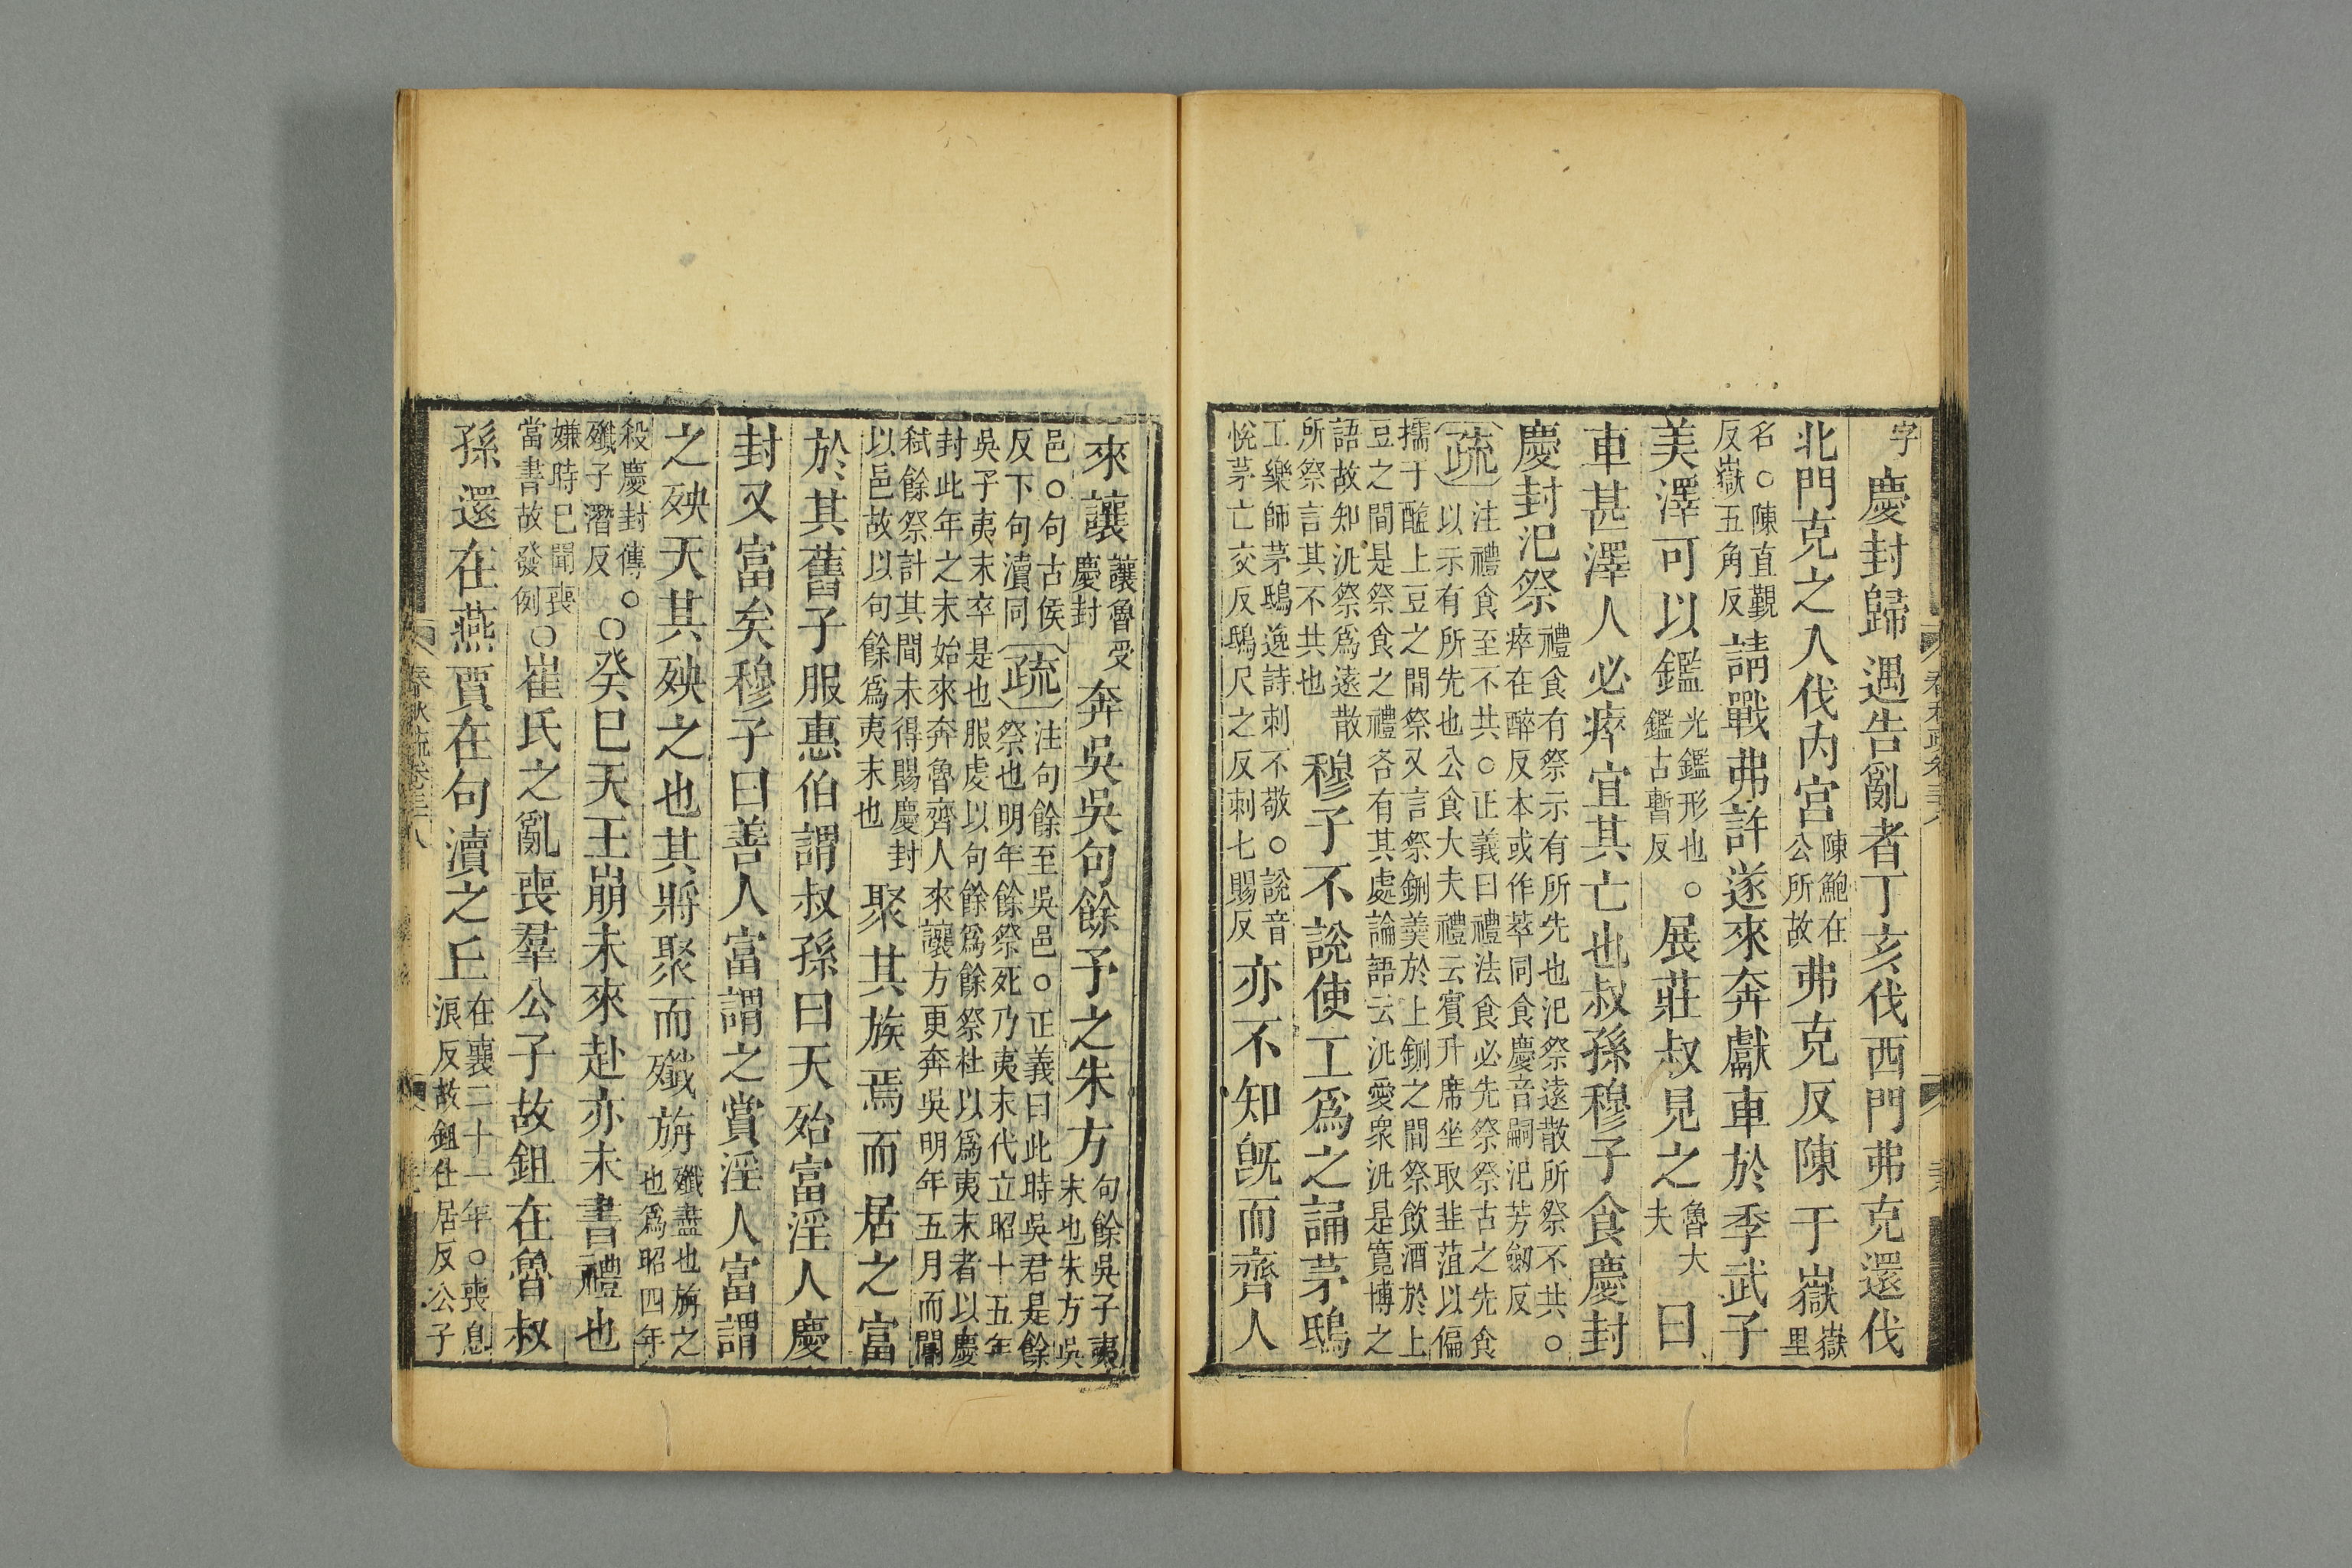 字慶封歸遇告亂者丁亥伐西門弗克還伐
北門克之入伐內宮陳鮑在公所故弗克反陳于嶽嶽里
名○陳直覲反嶽五角反請戰弗許遂來奔獻車於季武子
美澤可以鑑光鑑形也○鑑古暫反展莊叔見之魯大夫曰
車甚澤人必瘁宜其亡也叔孫穆子食慶封
慶封氾祭禮食有祭示有所先也氾祭遠散所祭不共○瘁在醉反本或作萃同食慶音嗣氾芳劒反
疏注禮食至不共○正義曰禮法食必先祭祭古之先食以示有所先也公食大夫禮云賓升席坐取韭菹以偏
擩于醢上豆之間祭又言祭鉶羮於上鉶之間祭飲酒於上豆之間是祭食之禮各有其處論語云汎愛衆汎是寬博之
語故知汎祭爲遠散所祭言其不共也穆子不說使工爲之誦茅鴟
工樂師茅鴟逸詩刺不敬○說音悅茅亡交反鴟尺之反刺七賜反亦不知旣而齊人
春秋疏卷三十八
來讓讓魯受慶封奔吳吳句餘予之朱方句餘吳子夷末也朱方吳
邑○句古侯反下句瀆同疏注句餘至吳邑○正義曰此時吳君是餘祭也明年餘祭死乃夷末代立昭十五年
吳子夷末卒是也服虔以句餘爲餘祭杜以爲夷末者以慶封此年之末始來奔魯齊人來讓方更奔吳明年五月而閽
弑餘祭計其間未得賜慶封以邑故以句餘爲夷末也聚其族焉而居之富
於其舊子服惠伯謂叔孫曰天殆富淫人慶
封又富矣穆子曰善人富謂之賞淫人富謂
之殃天其殃之也其將聚而殲旃殲盡也旃之也爲昭四年
殺慶封傳○殲子潛反○癸巳天王崩未來赴亦未書禮也
嫌時已聞喪當書故發例○崔氏之亂喪羣公子故鉏在魯叔
孫還在燕賈在句瀆之丘在襄二十一年○喪息浪反故鉏仕居反公子
春秋疏卷三十八